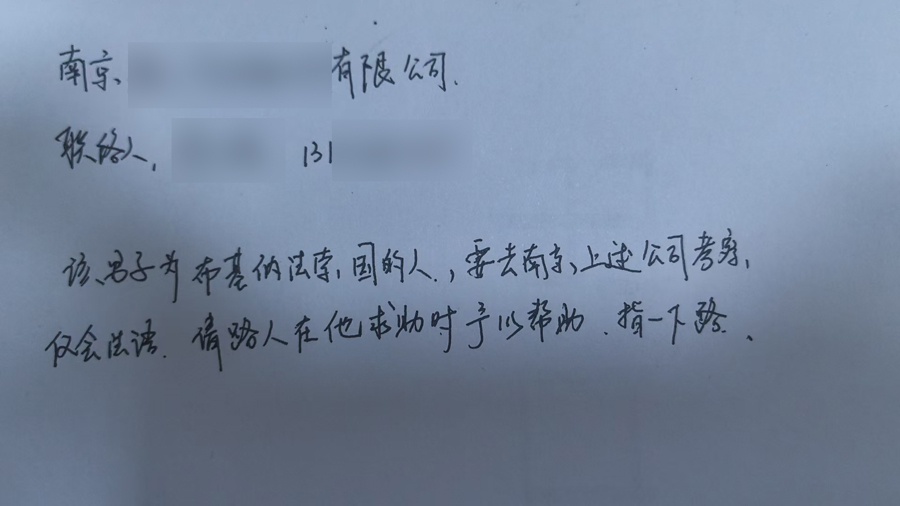 南京、有限公司.
联络人, 131
该男子为布基纳法索国的人,要去南京上述公司考察,
仅会法语.请路人在他求助时予以帮助.指一下路.